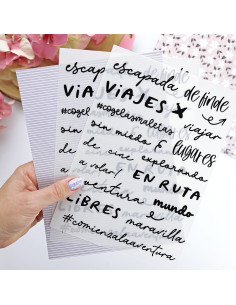 escapada de finde
VIAJES X
viajar
#cogelasmaletas
sin miedo & lugares
de cine explorando
a volar! EN RUTA
aventura mundo
LIBRES maravilla
#comienzalaaventura